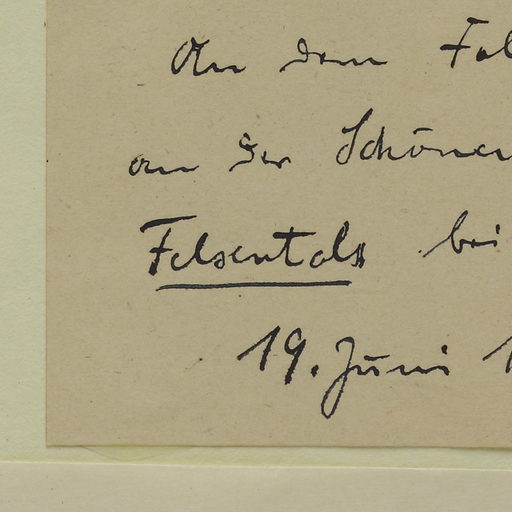 An dem Fel
an der Schönen
Felsentals bei
19. Juni 1